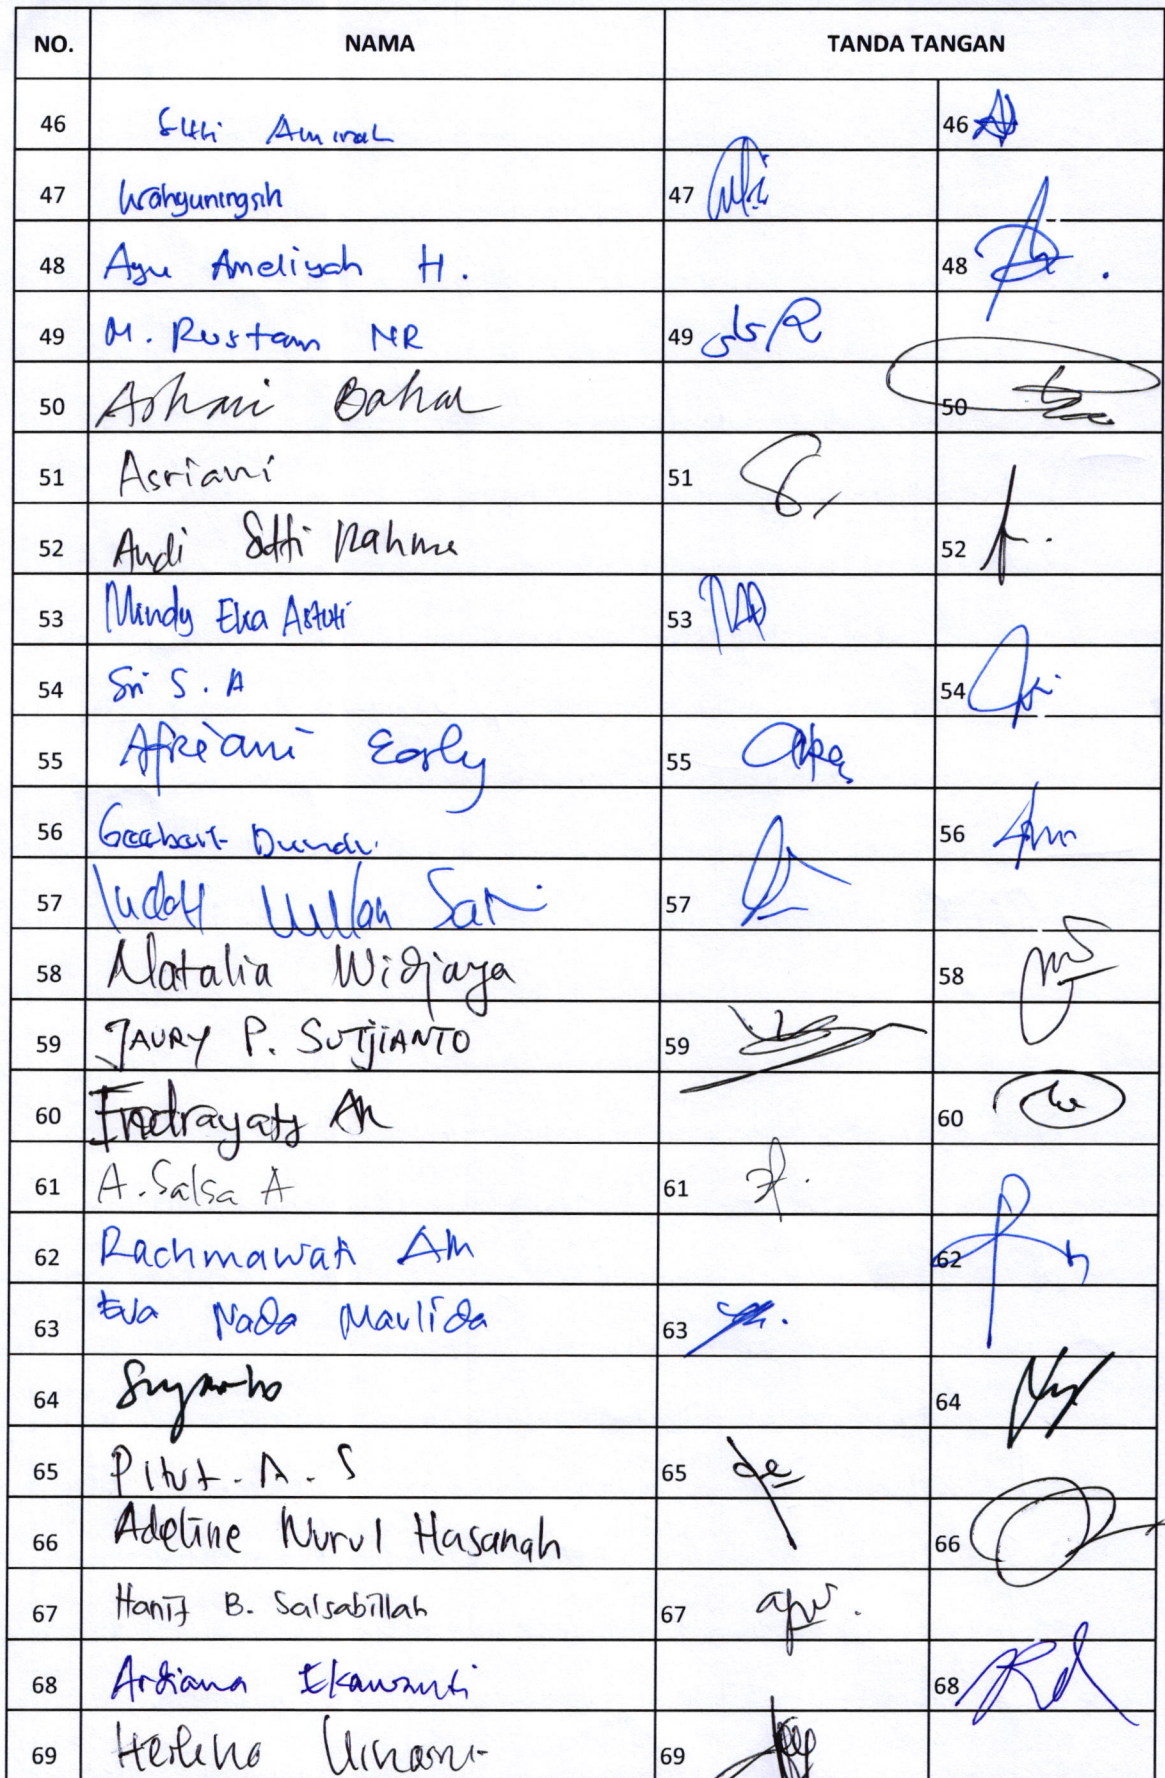 NO. NAMA TANDA TANGAN
46 Sitti Amirah 46
47 Wahyuningsih 47
48 Ayu Ameliyah H. 48
49 M. Rustam NR 49
50 Ashari Bahar 50
51 Asriani 51
52 Andi Sitti Rahma 52
53 Mindy Eka Astuti 53
54 Sri S. A 54
55 Afriani Early 55
56 56
57 Indah Wulan Sari 57
58 Natalia Widjaya 58
59 JAURY P. SUTJIANTO 59
60 Indrayaty AR 60
61 A. Salsa A 61
62 Rachmawati AM 62
63 Eva Nada Maulida 63
64 64
65 Pitut. A. S 65
66 Adeline Nurul Hasanah 66
67 Hanif B. Salsabillah 67
68 Ardiana Ekawanti 68
69 Herlina 69